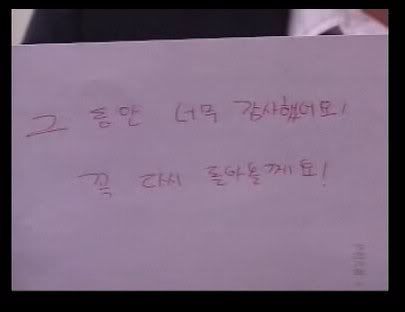 그 동안 너무 감사했어요!
꼭 다시 돌아올께요!